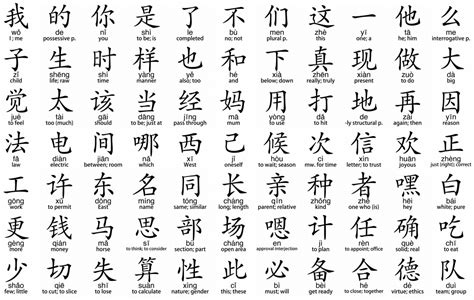 我 的 你 是 了 不 们 这 一 他 么
wǒ de nǐ shì le bù men zhè yī tā me
I; me possessive p. you to be; is completed no; not plural p. this one; a he; him interrogative p.
子 生 时 样 也 和 下 真 现 做 大
zǐ shēng shí yàng yě hé xià zhēn xiàn zuò dà
child life; raw time manner also; too and below; down really; truly present to do big
觉 太 该 当 经 妈 用 打 地 再 因
jué tài gāi dāng jīng mā yòng dǎ de zài yīn
to feel too (much) should to be; just at pass through mum to use to hit -ly structural p. again; then reason
法 电 间 哪 西 己 候 次 信 欢 正
fǎ diàn jiān nǎ xī jǐ hòu cì xìn huān zhèng
law electric between; room which West oneself to wait; season m.w. for time letter; to trust joyous just (right); correct
工 许 东 名 同 长 亲 种 者 嘿 白
gōng xǔ dōng míng tóng cháng qīn zhǒng zhě hēi bái
work to permit East name same; similar long; length parent; relative kind one who (is) hey white; pure
更 钱 马 思 部 场 嗯 计 任 确 吃
gèng qián mǎ sī bù chǎng en jì rèn què chī
more money horse to think; to consider section; part open area approval interjection to plan to appoint; office solid; real to eat
少 切 失 算 性 此 必 备 合 德 队
shǎo qiē shī suàn xìng cǐ bì bèi hé dé duì
few; little to cut; to slice to lose to calculate nature; gender this; these must; will to be ready to close; together virtue; ethics team; group